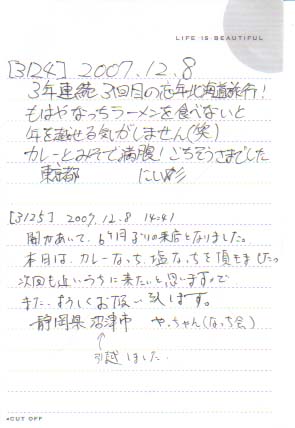 LIFE IS BEAUTIFUL
[3124] 2007.12.8
3年連続3回目の忘年北海道旅行!
もはやなっちラーメンを食べないと
年を越せる気がしません(笑)
カレーとみそで満腹!ごちそうさまでした
東京都 にしい
[3125] 2007.12.8 14:41
間があいて、6ヶ月ぶりの来店となりました。
本日は、カレーなっち、塩なっちを頂きました。
次回も近いうちに来たいと思いますので
また、よろしくお願い致します。
静岡県沼津市 やっちゃん(なっち会)
↑
引越しました.
CUT OFF